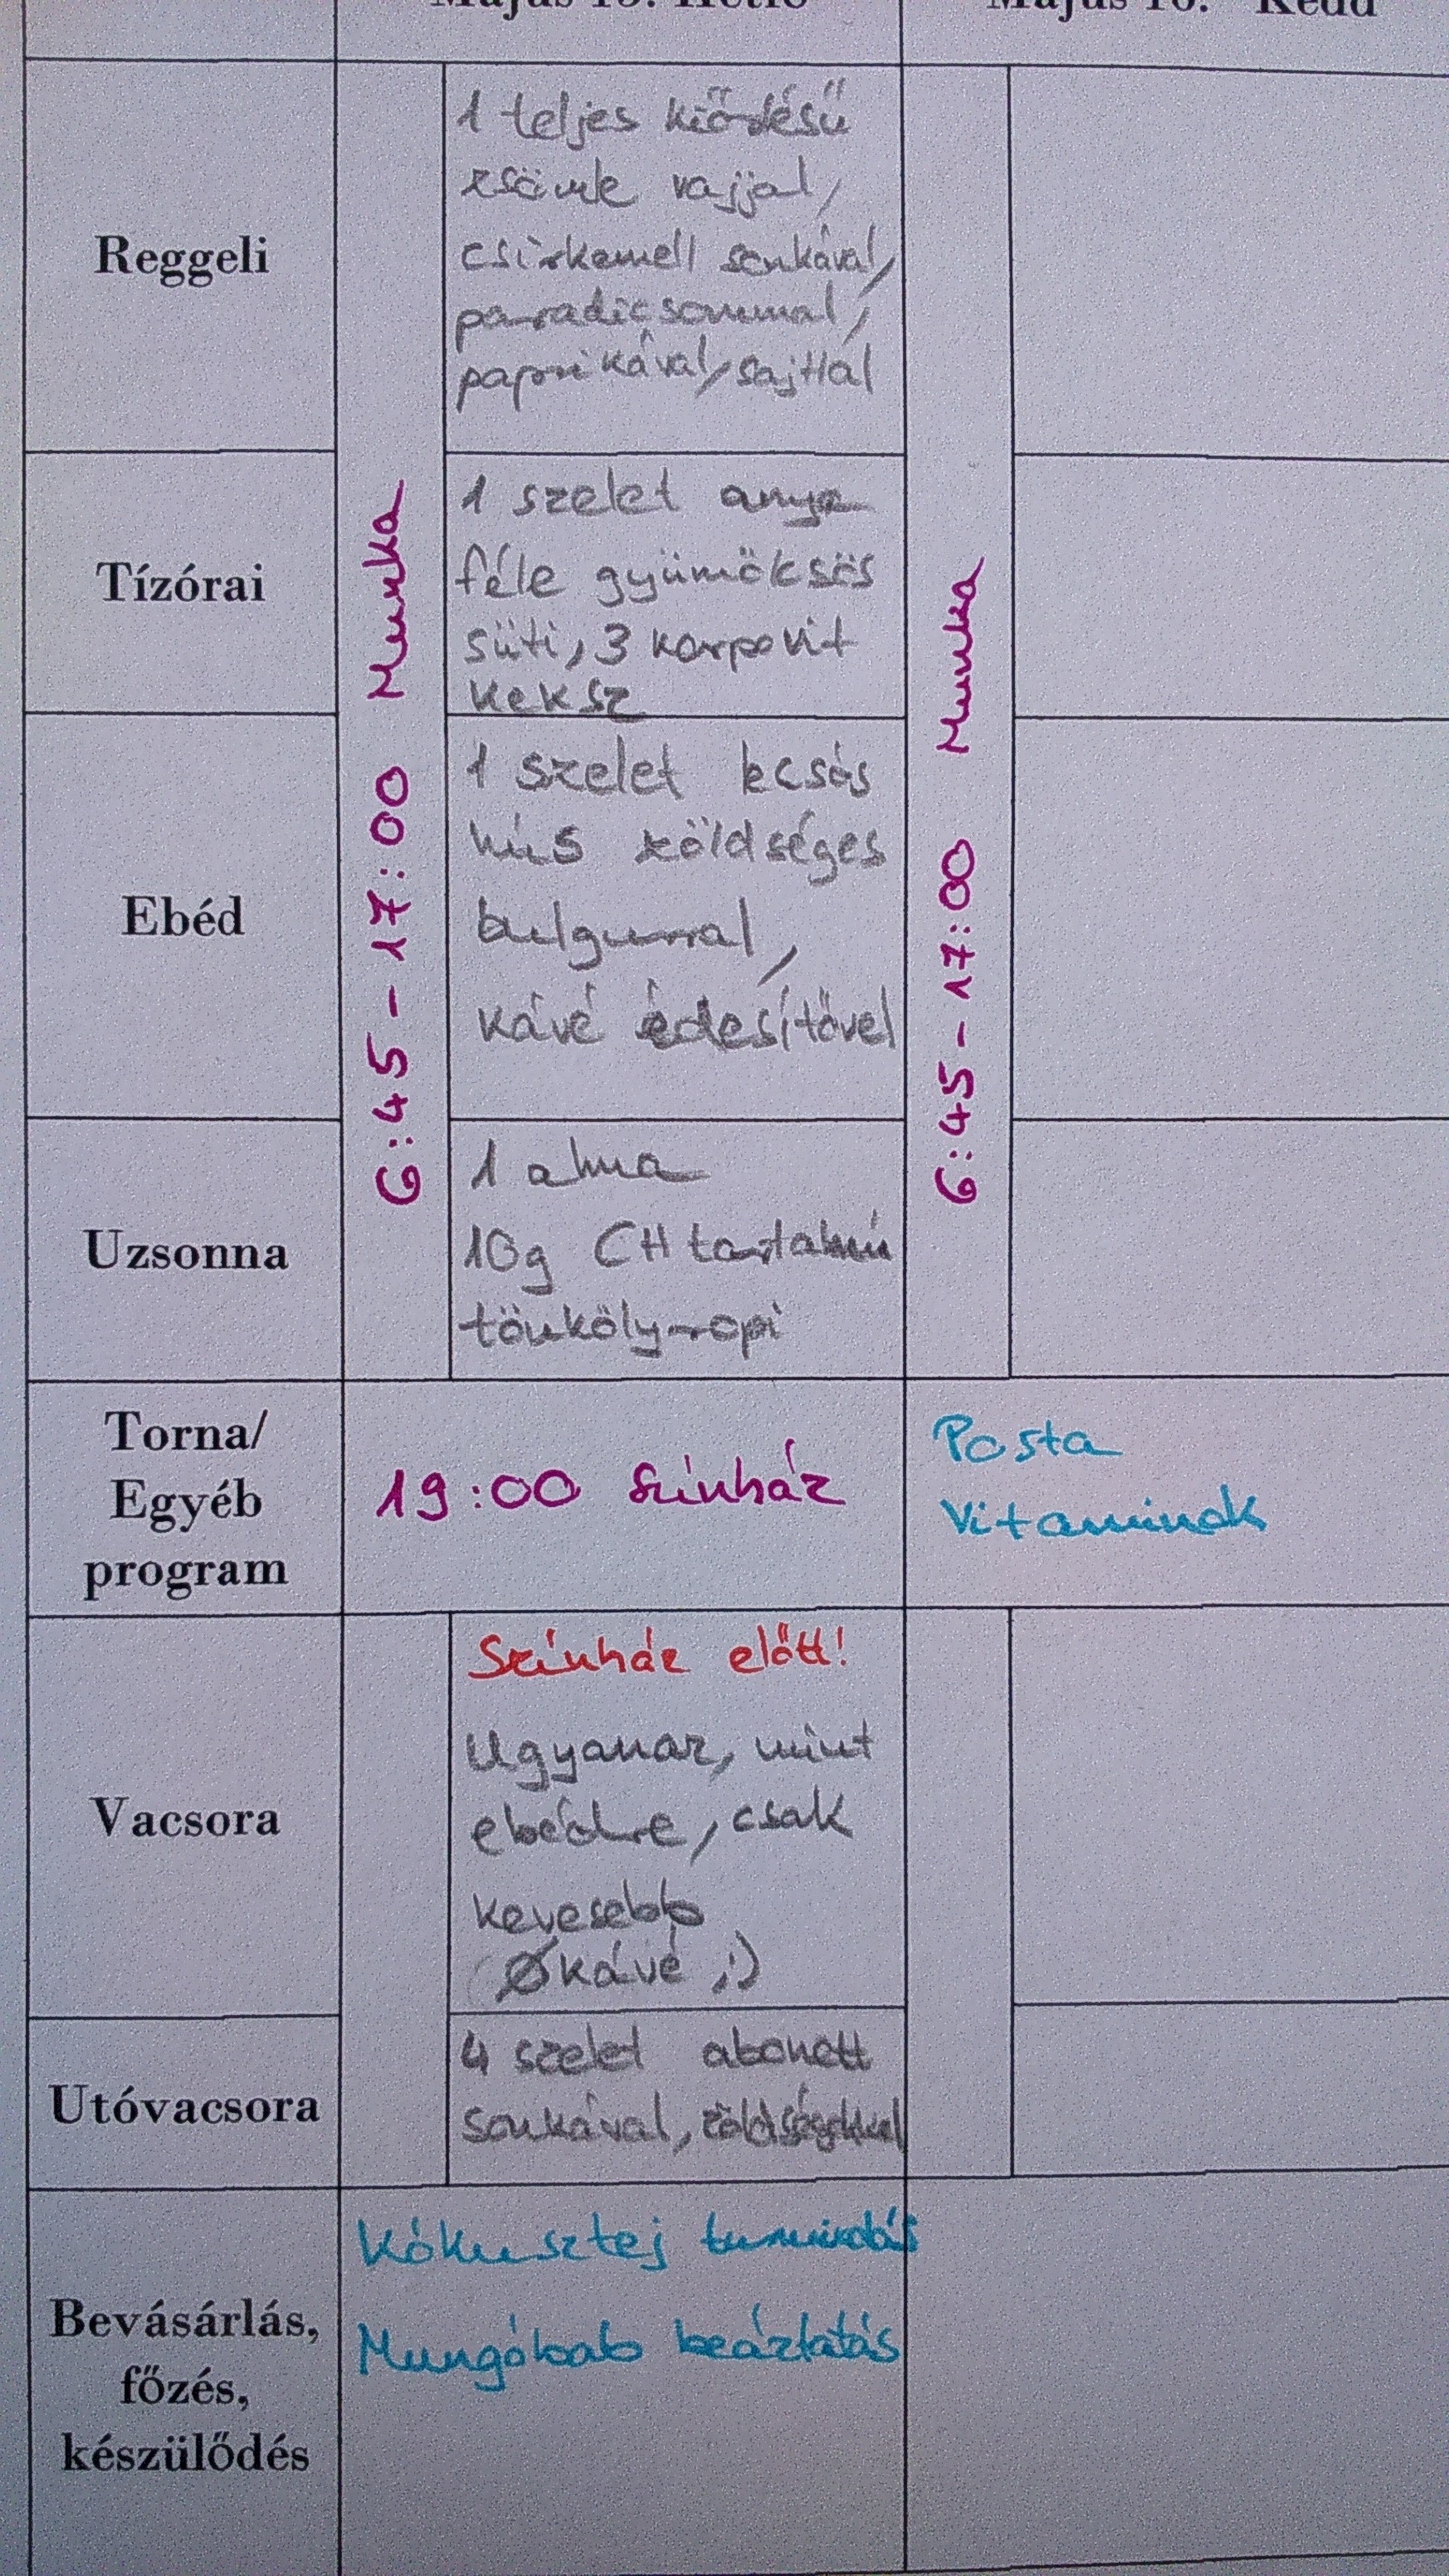 Május 15. Hétfő
Május 16. Kedd
Reggeli
1 teljes kiőrlésű
zsömle vajjal,
csirkemell sonkával,
paradicsommal,
paprikával, sajttal
Tízórai
1 szelet anya
féle gyümöksös
süti, 3 korpovit
keksz
6:45 - 17:00 Munka
6:45 - 17:00 Munka
Ebéd
1 szelet lecsós
hús zöldséges
bulgurral,
kávé édesítővel
Uzsonna
1 alma
10g CH tartalmú
tönköly ropi
Torna/
Egyéb
program
19:00 Színház
Posta
Vitaminok
Vacsora
Színház előtt!
Ugyanaz, mint
ebédre, csak
kevesebb
Ø kávé ;)
Utóvacsora
4 szelet abonett
sonkával, zöldségekkel
Bevásárlás,
főzés,
készülődés
Kókusztej
Mungóbab beáztatás